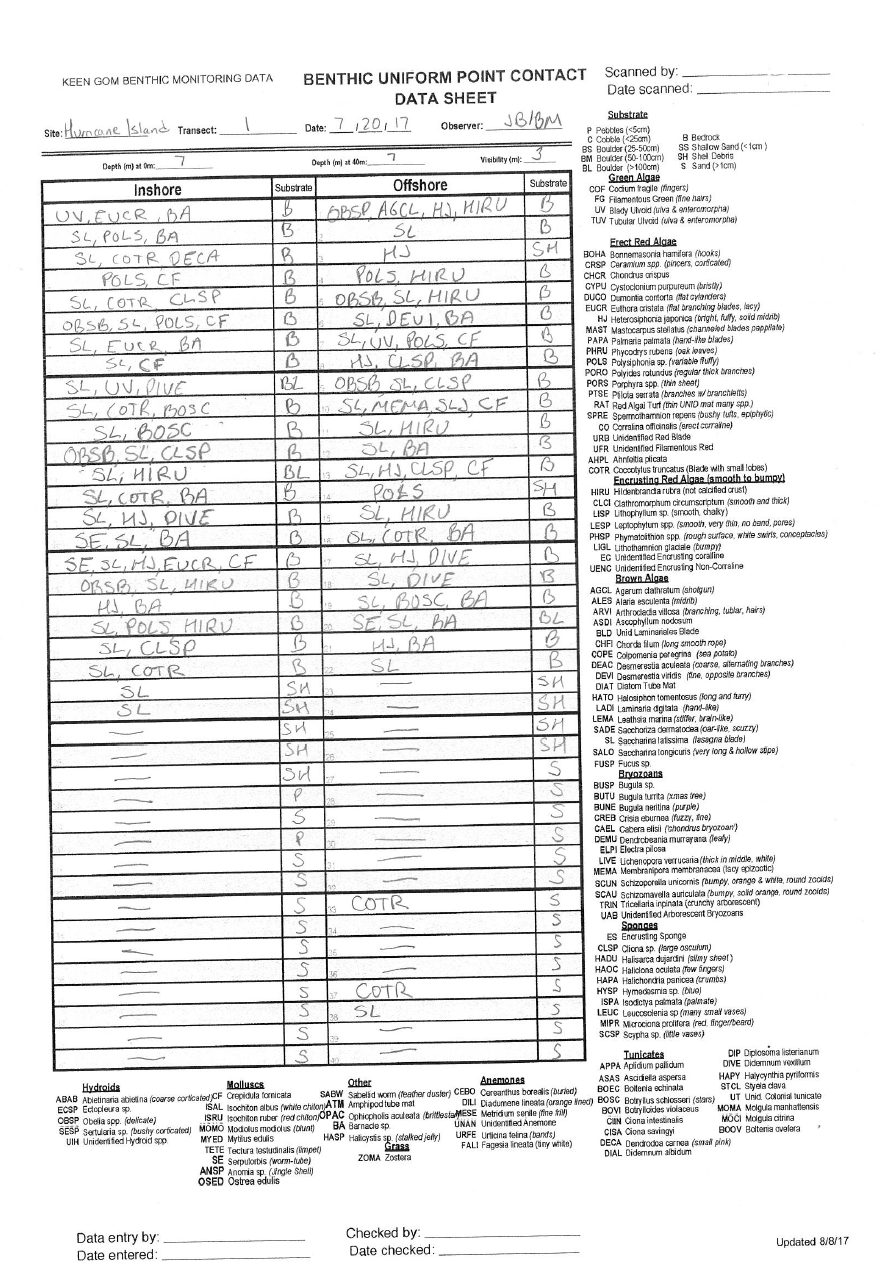 KEEN GOM BENTHIC MONITORING DATA
BENTHIC UNIFORM POINT CONTACT
DATA SHEET
Scanned by:
Date scanned:
Site: Hurricane Island Transect: 1 Date: 7/20/17 Observer: JB/BM
Depth (m) at 0m: 7 Depth (m) at 40m: 7 Visibility (m): 3
Inshore Substrate Offshore Substrate
UV, EUCR, BA B OBSP, AGCL, HJ, HIRU B
SL, POLS, BA B 2 SL B
SL, COTR DECA B 3 HJ SH
POLS, CF B 4 POLS, HIRU B
SL, COTR, CLSP B 5 OBSB, SL, HIRU B
OBSB, SL, POLS, CF B SL, DEVI, BA B
SL, EUCR, BA B SL, UV, POLS, CF B
SL, CF B HJ, CLSP, BA B
SL, UV, DIVE BL OBSB SL, CLSP B
SL, COTR, BOSC B 10 SL, MEMA, SLJ, CF B
SL, BOSC B 11 SL, HIRU B
OBSB, SL, CLSP B 12 SL, BA B
SL, HIRU BL 13 SL, HJ, CLSP, CF B
SL, COTR, BA B 14 POLS SH
SL, HJ, DIVE B 15 SL, HIRU B
SE, SL, BA B 16 SL, COTR, BA B
SE, SL, HJ, EUCR, CF B 17 SL, HJ, DIVE B
OBSB, SL, HIRU B 18 SL, DIVE B
HJ, BA B 19 SL, BOSC, BA B
SL, POLS HIRU B 20 SE, SL, BA BL
SL, CLSP B 21 HJ, BA B
SL, COTR B 22 SL B
SL SH 23 — SH
SL SH 24 — SH
— SH 25 — SH
— SH 26 — SH
— SH 27 — S
— P 28 — S
— S 29 — S
— P 30 — S
— S 31 — S
— S 32 — S
— S 33 COTR S
— S 34 — S
— S 35 — S
— S 36 — S
— S 37 COTR S
— S 38 SL S
— S 39 — S
— S 40 — S
Substrate
P Pebbles (<5cm)
C Cobble (<25cm) B Bedrock
BS Boulder (25-50cm) SS Shallow Sand (<1cm )
BM Boulder (50-100cm) SH Shell Debris
BL Boulder (>100cm) S Sand (>1cm)
Green Algae
COF Codium fragile (fingers)
FG Filamentous Green (fine hairs)
UV Blady Ulvoid (ulva & enteromorpha)
TUV Tubular Ulvoid (ulva & enteromorpha)
Erect Red Algae
BOHA Bonnemasonia hamifera (hooks)
CRSP Ceramium spp. (pincers, corticated)
CHCR Chondrus crispus
CYPU Cystoclonium purpureum (bristly)
DUCO Dumontia contorta (flat cylanders)
EUCR Euthora cristata (flat branching blades, lacy)
HJ Heterosiphonia japonica (bright, fuffy, solid midrib)
MAST Mastocarpus stellatus (channeled blades pappilate)
PAPA Palmaria palmata (hand-like blades)
PHRU Phycodrys rubens (oak leaves)
POLS Polysiphonia sp. (variable fluffy)
PORO Polyides rotundus (regular thick branches)
PORS Porphyra spp. (thin sheet)
PTSE Ptilota serrata (branches w/ branchletts)
RAT Red Algal Turf (thin UNID mat many spp.)
SPRE Spermothamnion repens (bushy tufts, epiphytic)
CO Corallina officinalis (erect corraline)
URB Unidentified Red Blade
UFR Unidentified Filamentous Red
AHPL Ahnfeltia plicata
COTR Coccotylus truncatus (Blade with small lobes)
Encrusting Red Algae (smooth to bumpy)
HIRU Hildenbrandia rubra (not calcified crust)
CLCI Clathromorphum circumscriptum (smooth and thick)
LISP Lithophyllum sp. (smooth, chalky)
LESP Leptophytum spp. (smooth, very thin, no band, pores)
PHSP Phymatolithon spp. (rough surface, white swirls, conceptacles)
LIGL Lithothamnion glaciale (bumpy)
EC Unidentified Encrusting coralline
UENC Unidentified Encrusting Non-Corraline
Brown Algae
AGCL Agarum clathratum (shotgun)
ALES Alaria esculenta (midrib)
ARVI Arthrocladia villosa (branching, tublar, hairs)
ASDI Ascophyllum nodosum
BLD Unid Laminariales Blade
CHFI Chorda filum (long smooth rope)
COPE Colpomenia peregrina (sea potato)
DEAC Desmerestia aculeata (coarse, alternating branches)
DEVI Desmerestia viridis (fine, opposite branches)
DIAT Diatom Tube Mat
HATO Halosiphon tomentosus (long and furry)
LADI Laminaria digitata (hand-like)
LEMA Leathsia marina (stiffer, brain-like)
SADE Sacchoriza dermatodea (oar-like, scuzzy)
SL Saccharina latissima (lasagna blade)
SALO Saccharina longicuris (very long & hollow stipe)
FUSP Fucus sp.
Bryozoans
BUSP Bugula sp.
BUTU Bugula turrita (xmas tree)
BUNE Bugula neritina (purple)
CREB Crisia eburnea (fuzzy, fine)
CAEL Cabera ellisii ('chondrus bryozoan')
DEMU Dendrobeania murrayana (leafy)
ELPI Electra pilosa
LIVE Lichenopora verrucaria (thick in middle, white)
MEMA Membranipora membranacea (lacy epizootic)
SCUN Schizoporella unicornis (bumpy, orange & white, round zooids)
SCAU Schizomavella auriculata (bumpy, solid orange, round zooids)
TRIN Tricellaria inpinata (crunchy arborescent)
UAB Unidentified Arborescent Bryozoans
Sponges
ES Encrusting Sponge
CLSP Cliona sp. (large osculum)
HADU Halisarca dujardini (slimy sheet )
HAOC Haliclona oculata (few fingers)
HAPA Halichondria panicea (crumbs)
HYSP Hymedesmia sp. (blue)
ISPA Isodictya palmata (palmate)
LEUC Leucosolenia sp (many small vases)
MIPR Microciona prolifera (red, finger/beard)
SCSP Scypha sp. (little vases)
Tunicates
APPA Aplidium pallidum
ASAS Ascidiella aspersa
BOEC Boltenia echinata
BOSC Botryllus schlosseri (stars)
BOVI Botrylloides violaceus
CIIN Ciona intestinalis
CISA Ciona savingyi
DECA Dendrodoa carnea (small pink)
DIAL Didemnum albidum
DIP Diplosoma listerianum
DIVE Didemnum vexillum
HAPY Halycynthia pyriformis
STCL Styela clava
UT Unid. Colonial tunicate
MOMA Molgula manhattensis
MOCI Molgula citrina
BOOV Boltenia ovefera
Hydroids
ABAB Abietinaria abietina (coarse corticated)
ECSP Ectopleura sp.
OBSP Obelia spp. (delicate)
SESP Sertularia sp. (bushy corticated)
UIH Unidentified Hydroid spp.
Molluscs
CF Crepidula fornicata
ISAL Isochiton albus (white chiton)
ISRU Isochiton ruber (red chiton)
MOMO Modiolus modiolus (blunt)
MYED Mytilus edulis
TETE Tectura testudinalis (limpet)
SE Serpulorbis (worm-tube)
ANSP Anomia sp. (Jingle Shell)
OSED Ostrea edulis
Other
SABW Sabellid worm (feather duster)
ATM Amphipod tube mat
OPAC Ophiopholis aculeata (brittlestar)
BA Barnacle sp.
HASP Halicystis sp. (stalked jelly)
Grass
ZOMA Zostera
Anemones
CEBO Cereanthus borealis (buried)
DILI Diadumene lineata (orange lined)
MESE Metridium senile (fine frill)
UNAN Unidentified Anemone
URFE Urticina felina (bands)
FALI Fagesia lineata (tiny white)
Data entry by:
Date entered:
Checked by:
Date checked:
Updated 8/8/17